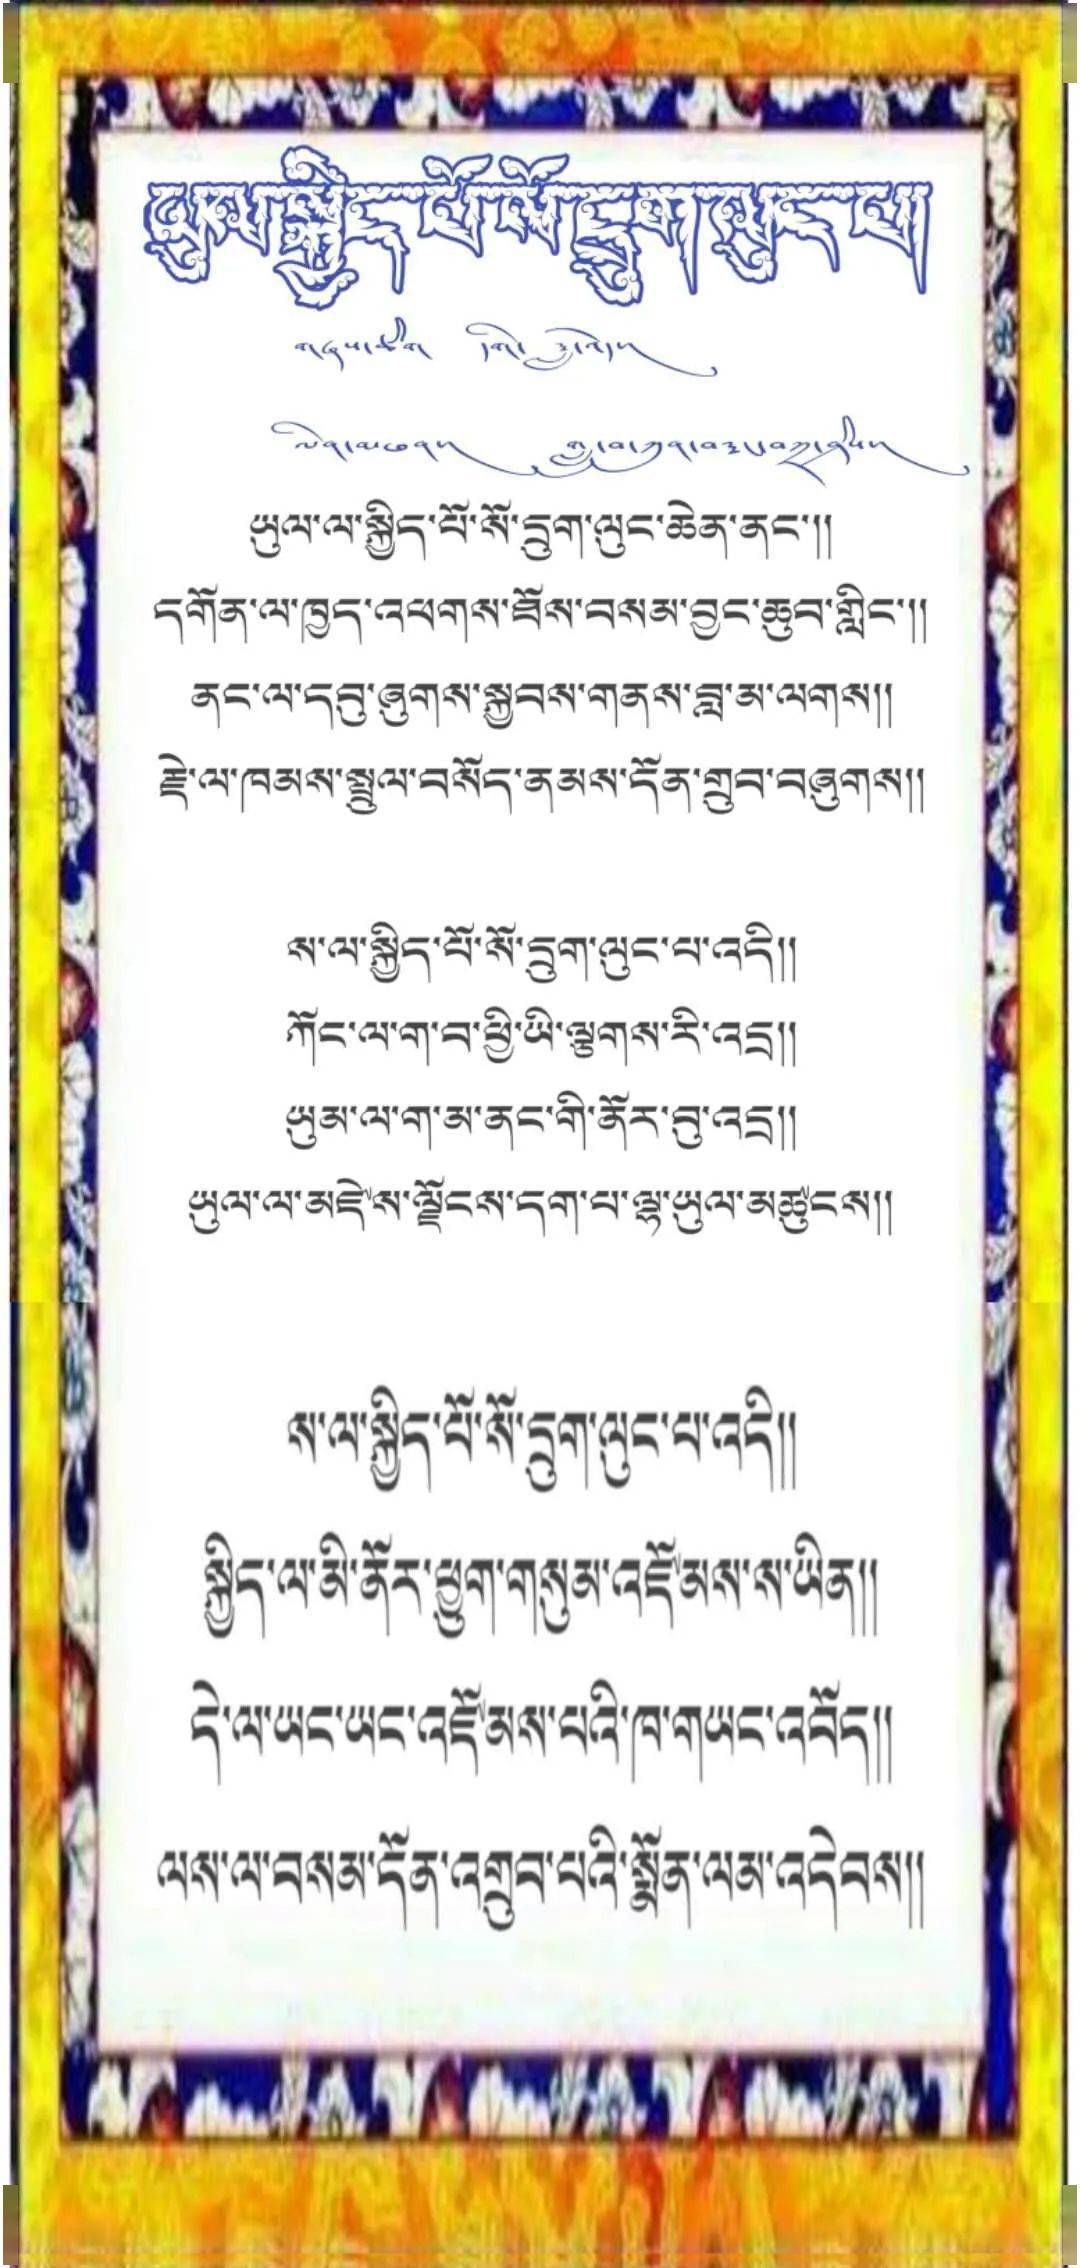 ཡུལ་སྐྱིད་པོ་སོ་དྲུག་ལུང་པ།
ཡུལ་ལ་སྐྱིད་པོ་སོ་དྲུག་ལུང་ཆེན་ནང་།།
དགོན་ལ་ཁྱད་འཕགས་ཐོས་བསམ་བྱང་ཆུབ་གླིང་།།
ནང་ལ་དབུ་ཞུགས་སྐྱབས་གནས་བླ་མ་ལགས།།
རྗེ་ལ་ཁམས་སྤྲུལ་བསོད་ནམས་དོན་གྲུབ་བཞུགས།།
ས་ལ་སྐྱིད་པོ་སོ་དྲུག་ལུང་པ་འདི།།
ཀོང་ལ་ག་བ་ཕྱི་ཡི་ལྕགས་རི་འདྲ།།
ཡུམ་ལ་ག་མ་ནང་གི་ནོར་བུ་འདྲ།།
ཡུལ་ལ་མཛེས་ལྗོངས་དག་པ་ལྷ་ཡུལ་མཚུངས།།
ས་ལ་སྐྱིད་པོ་སོ་དྲུག་ལུང་པ་འདི།།
སྐྱིད་ལ་མི་ནོར་ཕྱུག་གསུམ་འཛོམས་ས་ཡིན།།
དེ་ལ་ཡང་ཡང་འཛོམས་པའི་ཁ་གཡང་འབོད།།
ལས་ལ་བསམ་དོན་འགྲུབ་པའི་སྨོན་ལམ་འདེབས།།